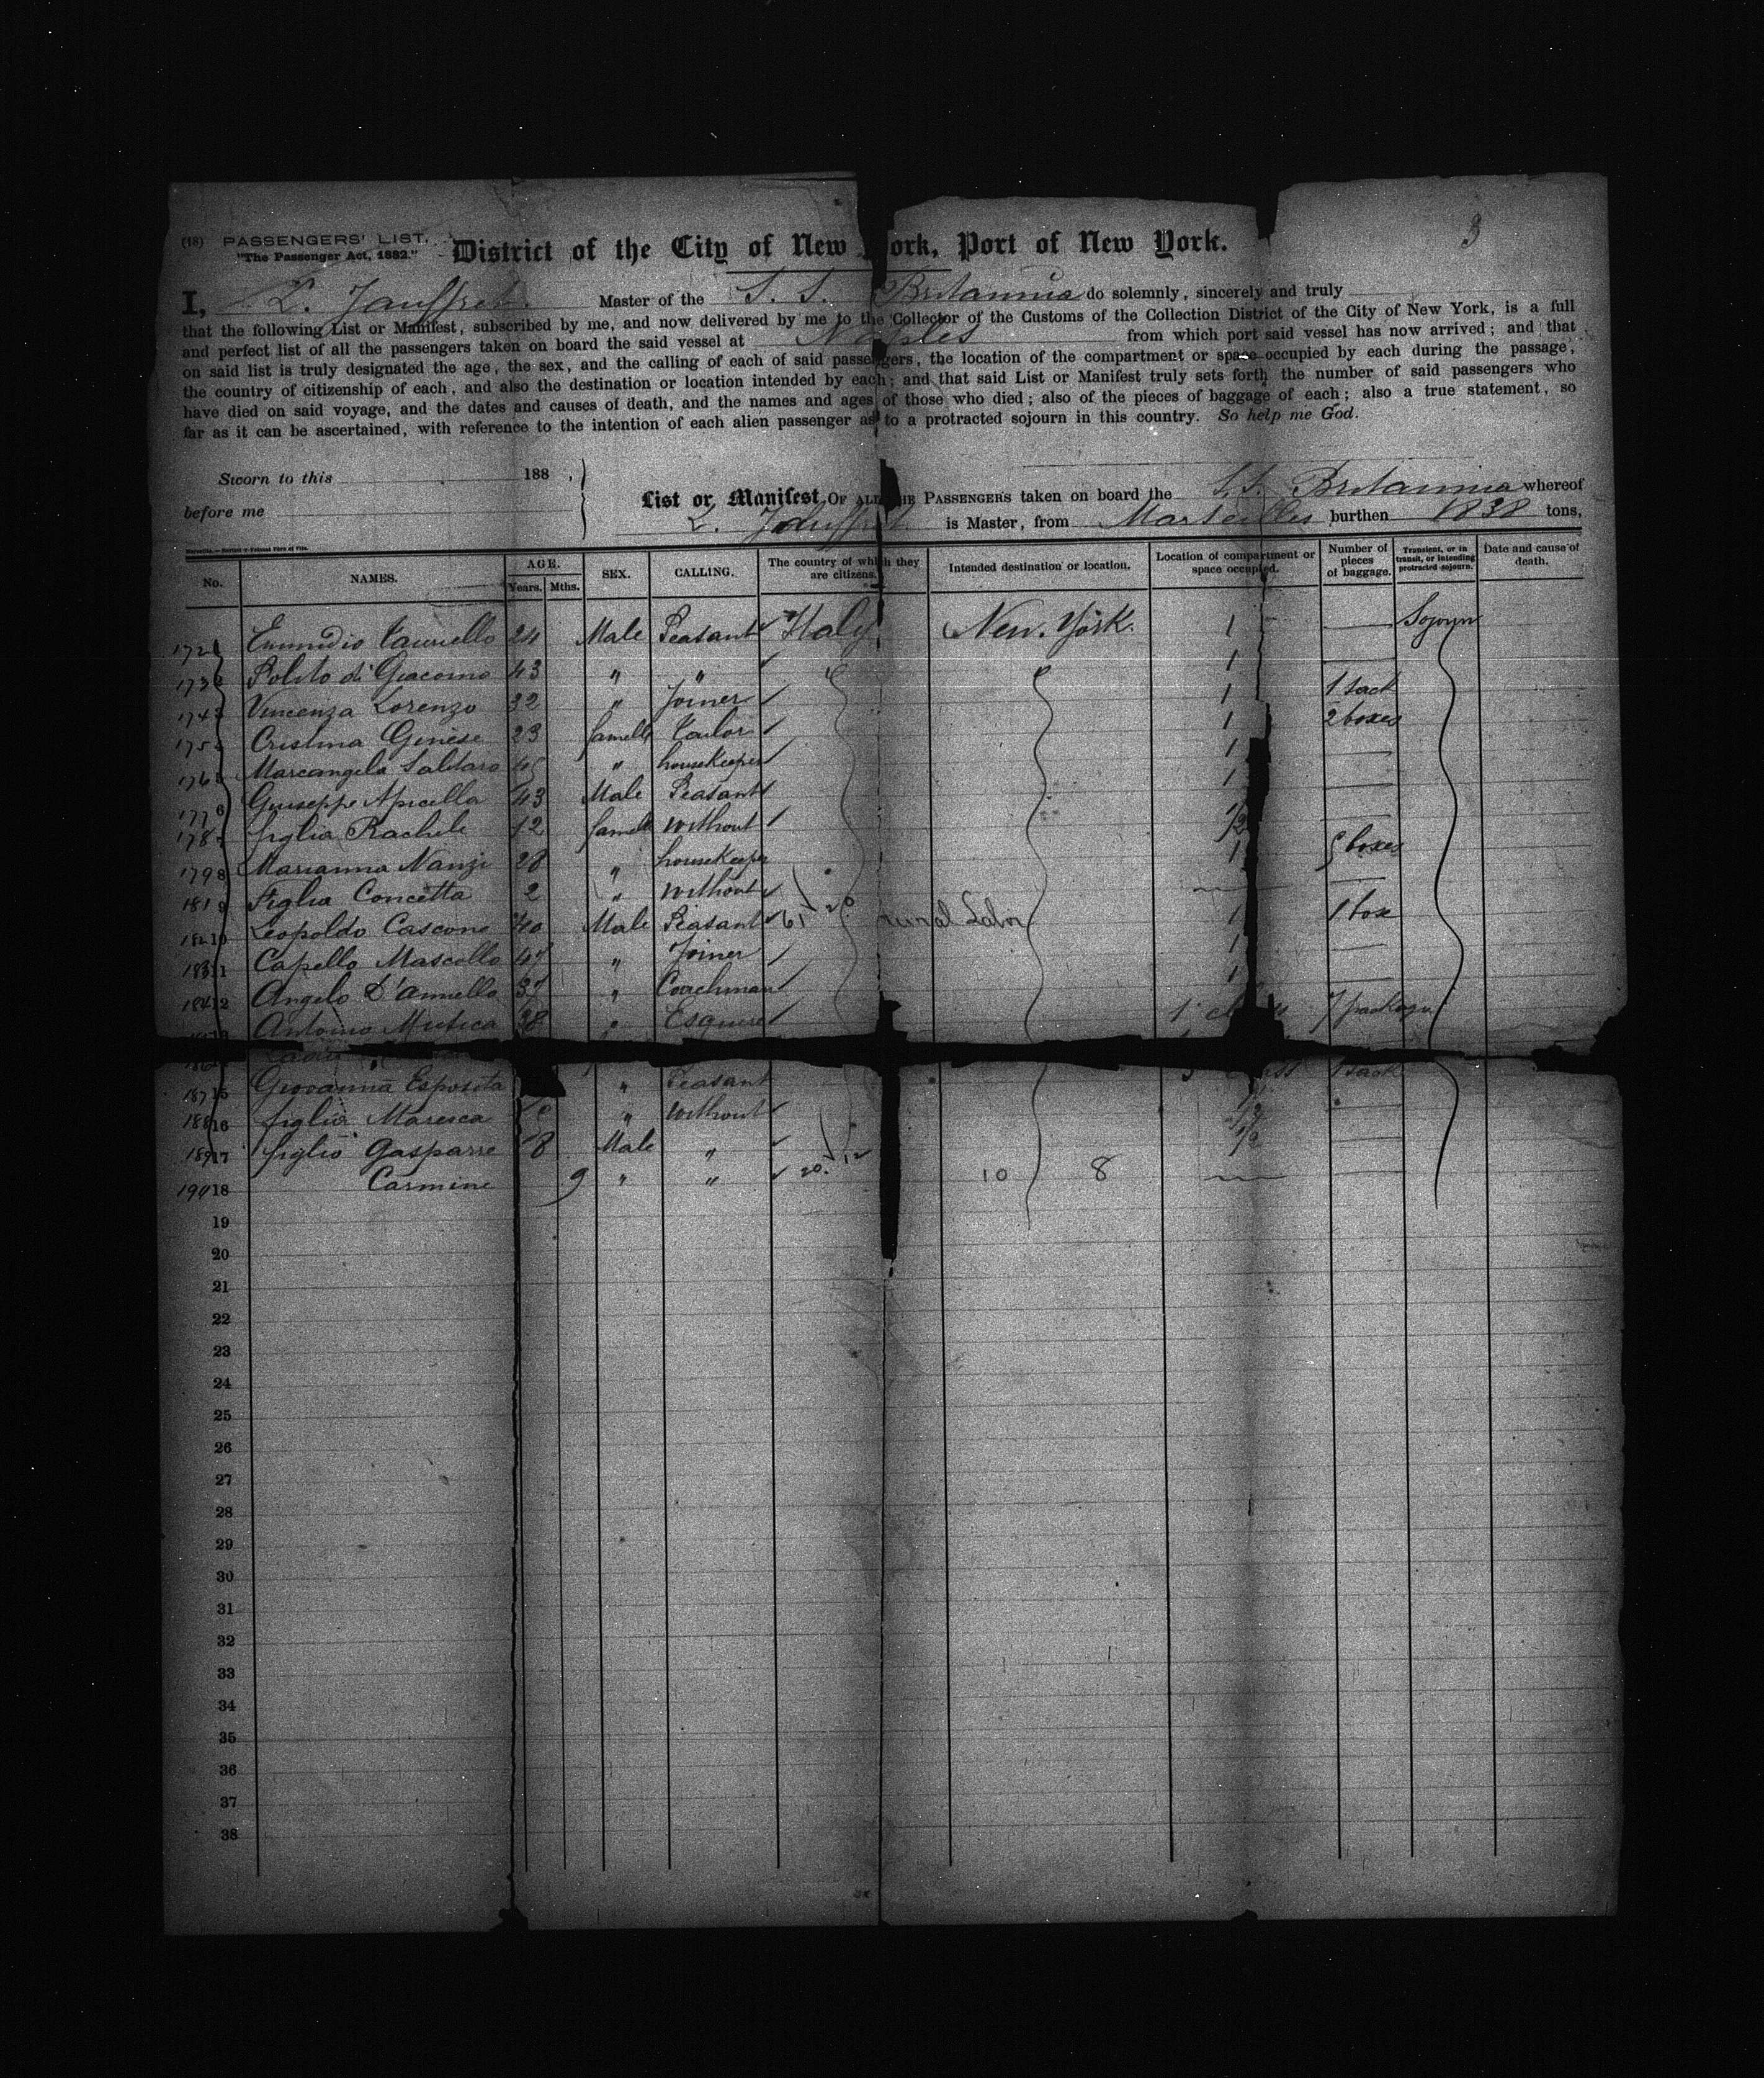 3
(18) PASSENGERS' LIST.
"The Passenger Act, 1882."
District of the City of New York, Port of New York.
I, L. Jauffret Master of the S. S. Britannia do solemnly, sincerely and truly
that the following List or Manifest, subscribed by me, and now delivered by me to the Collector of the Customs of the Collection District of the City of New York, is a full
and perfect list of all the passengers taken on board the said vessel at Naples from which port said vessel has now arrived; and that
on said list is truly designated the age, the sex, and the calling of each of said passengers, the location of the compartment or space occupied by each during the passage,
the country of citizenship of each, and also the destination or location intended by each; and that said List or Manifest truly sets forth the number of said passengers who
have died on said voyage, and the dates and causes of death, and the names and ages of those who died; also of the pieces of baggage of each; also a true statement, so
far as it can be ascertained, with reference to the intention of each alien passenger as to a protracted sojourn in this country. So help me God.
Sworn to this 188 ,
before me
List or Manifest, OF ALL THE PASSENGERS taken on board the S.S. Britannia whereof
L. Jauffret is Master, from Marseilles burthen 1838 tons,
No. NAMES. AGE. Years. Mths. SEX. CALLING. The country of which they are citizens. Intended destination or location. Location of compartment or space occupied. Number of pieces of baggage. Transient, or in transit, or intending protracted sojourn. Date and cause of death.
172 24 Male Peasant Italy New York. 1 Sojourn
173 Polito di Giacomo 43 " " 1
174 Vincenza Lorenzo 32 " Joiner 1 1 sack
175 Cristina Ginese 23 famelle Tailor 1 2 boxes
176 Marcangelo 45 " housekeeper 1
177 6 Giuseppe Apicella 43 Male Peasant 1
178 figlia Rachele 12 famelle without 1/2
179 8 Marianna Nanzi 28 " housekeeper 1 5 boxes
181 9 figlia Concetta 2 " without
182 10 Leopoldo Cascone 40 Male Peasant 61 Labor 1 1 box
183 11 Capello Mascollo 47 " Joiner 1
184 12 Angelo D'Aniello 37 " Coachman 1
Antonio Mutica 38 " Esquire 1 7 package
187 15 Giovanna Esposita " Peasant 1 sack
188 16 figlia Maresca " without 1/2
189 17 figlio Gasparre 8 Male " 1/2
190 18 Carmine 9 " " 20 12 10 8
19
20
21
22
23
24
25
26
27
28
29
30
31
32
33
34
35
36
37
38